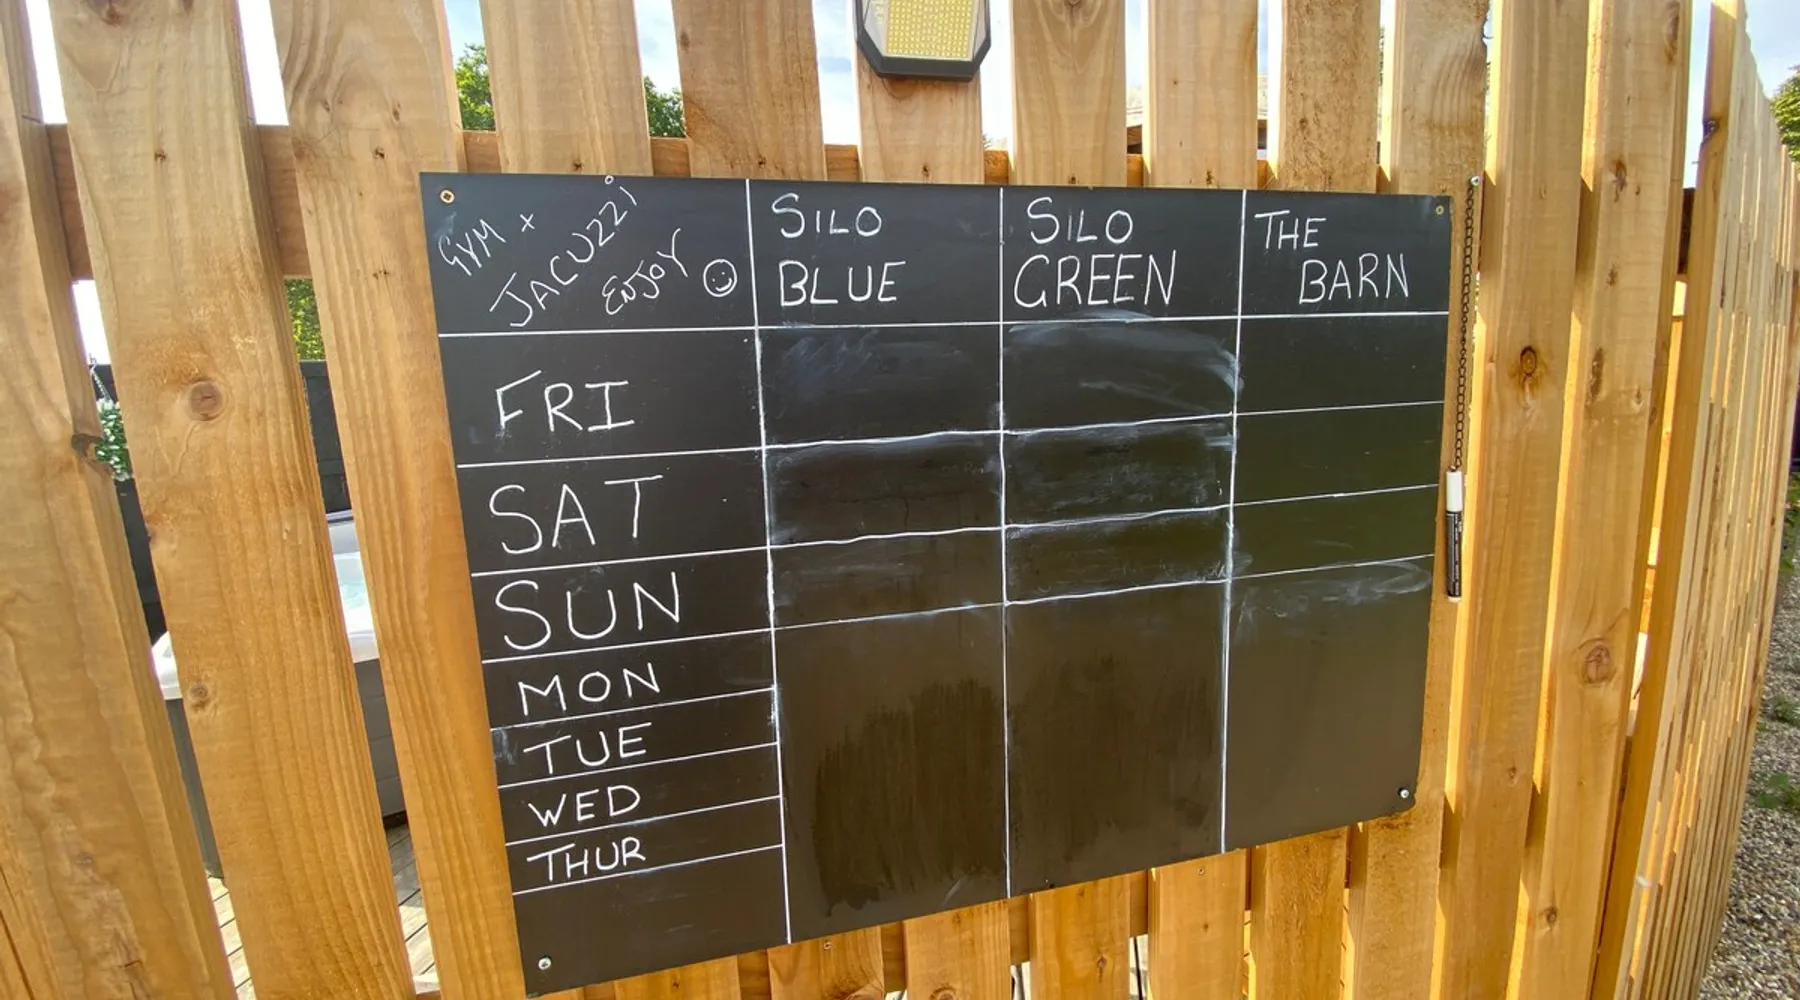 GYM x
JACUZZi
ENJOY
SILO
BLUE
SILO
GREEN
THE
BARN
FRI
SAT
SUN
MON
TUE
WED
THUR